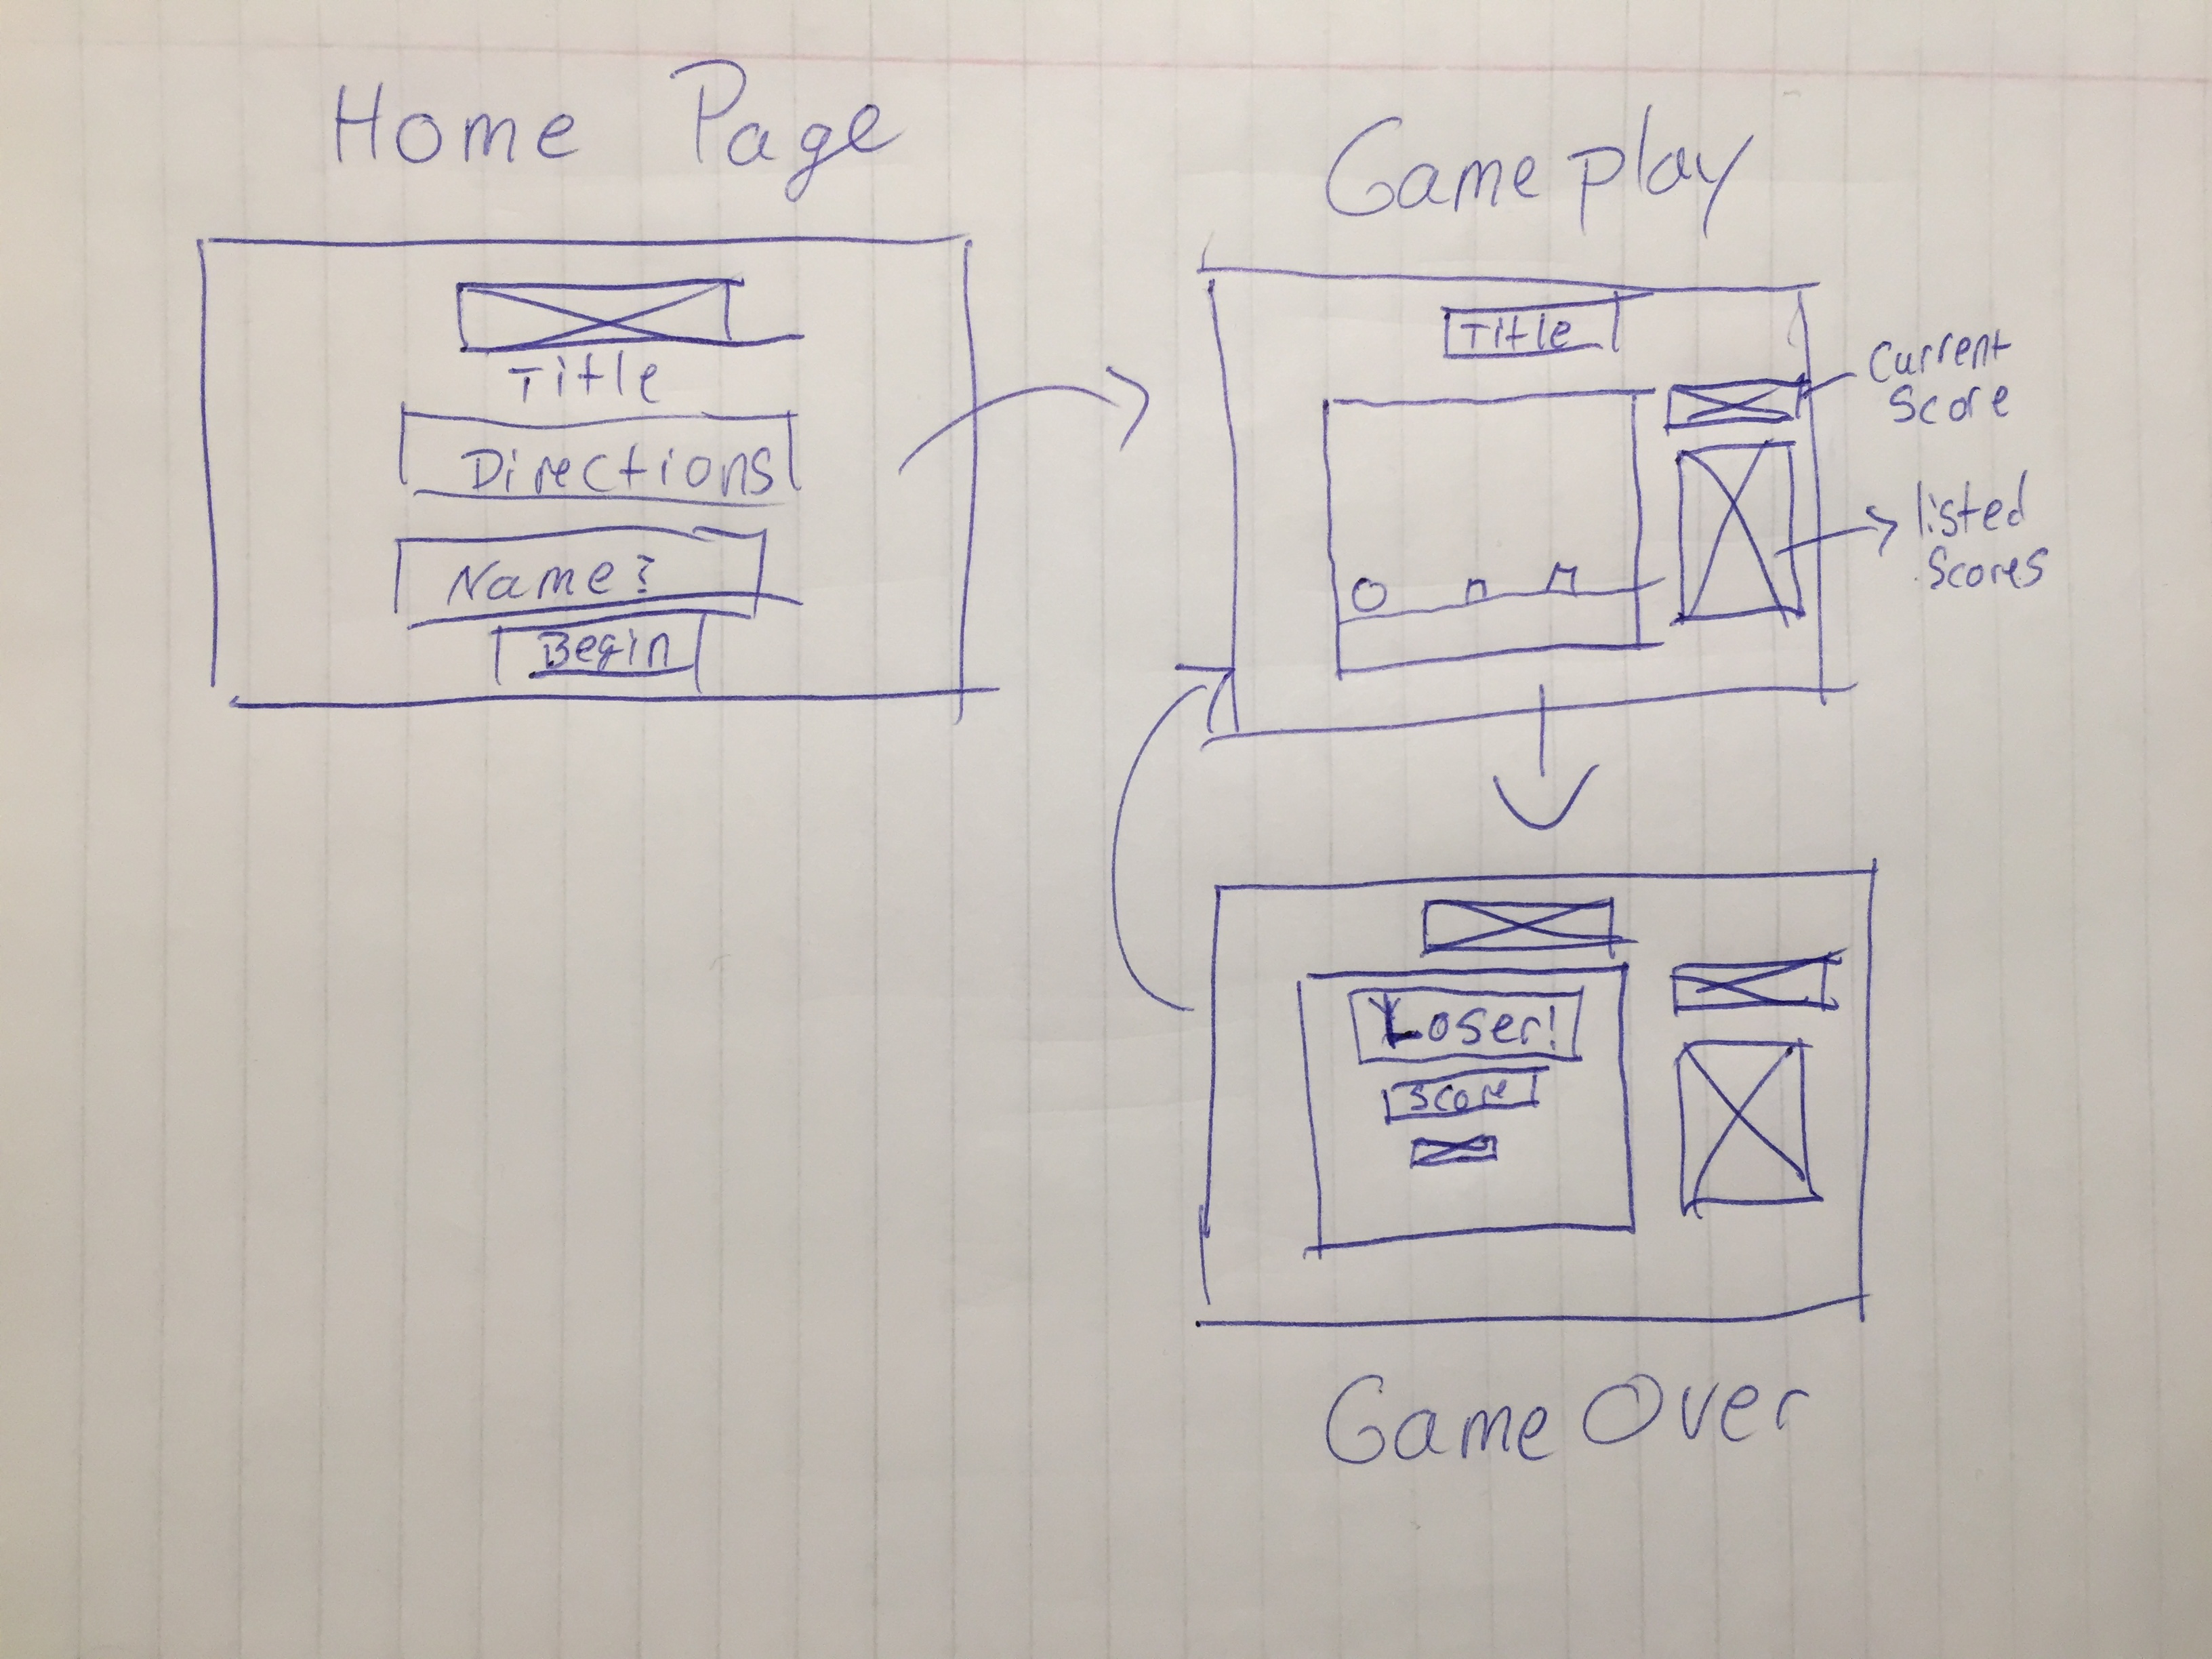 Home Page
Title
Directions
Name?
Begin
Gameplay
Title
Current
Score
listed
Scores
Loser!
Score
Game Over